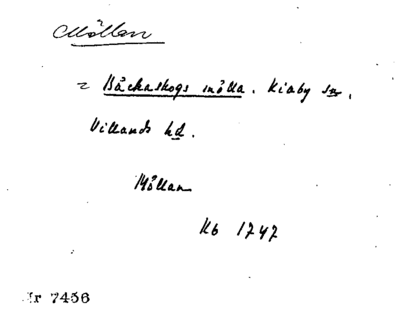 Möllan
= Bäckaskogs mölla. Kiaby sn.
Villands hd.
Möllan
Kb 1747
Nr 7456